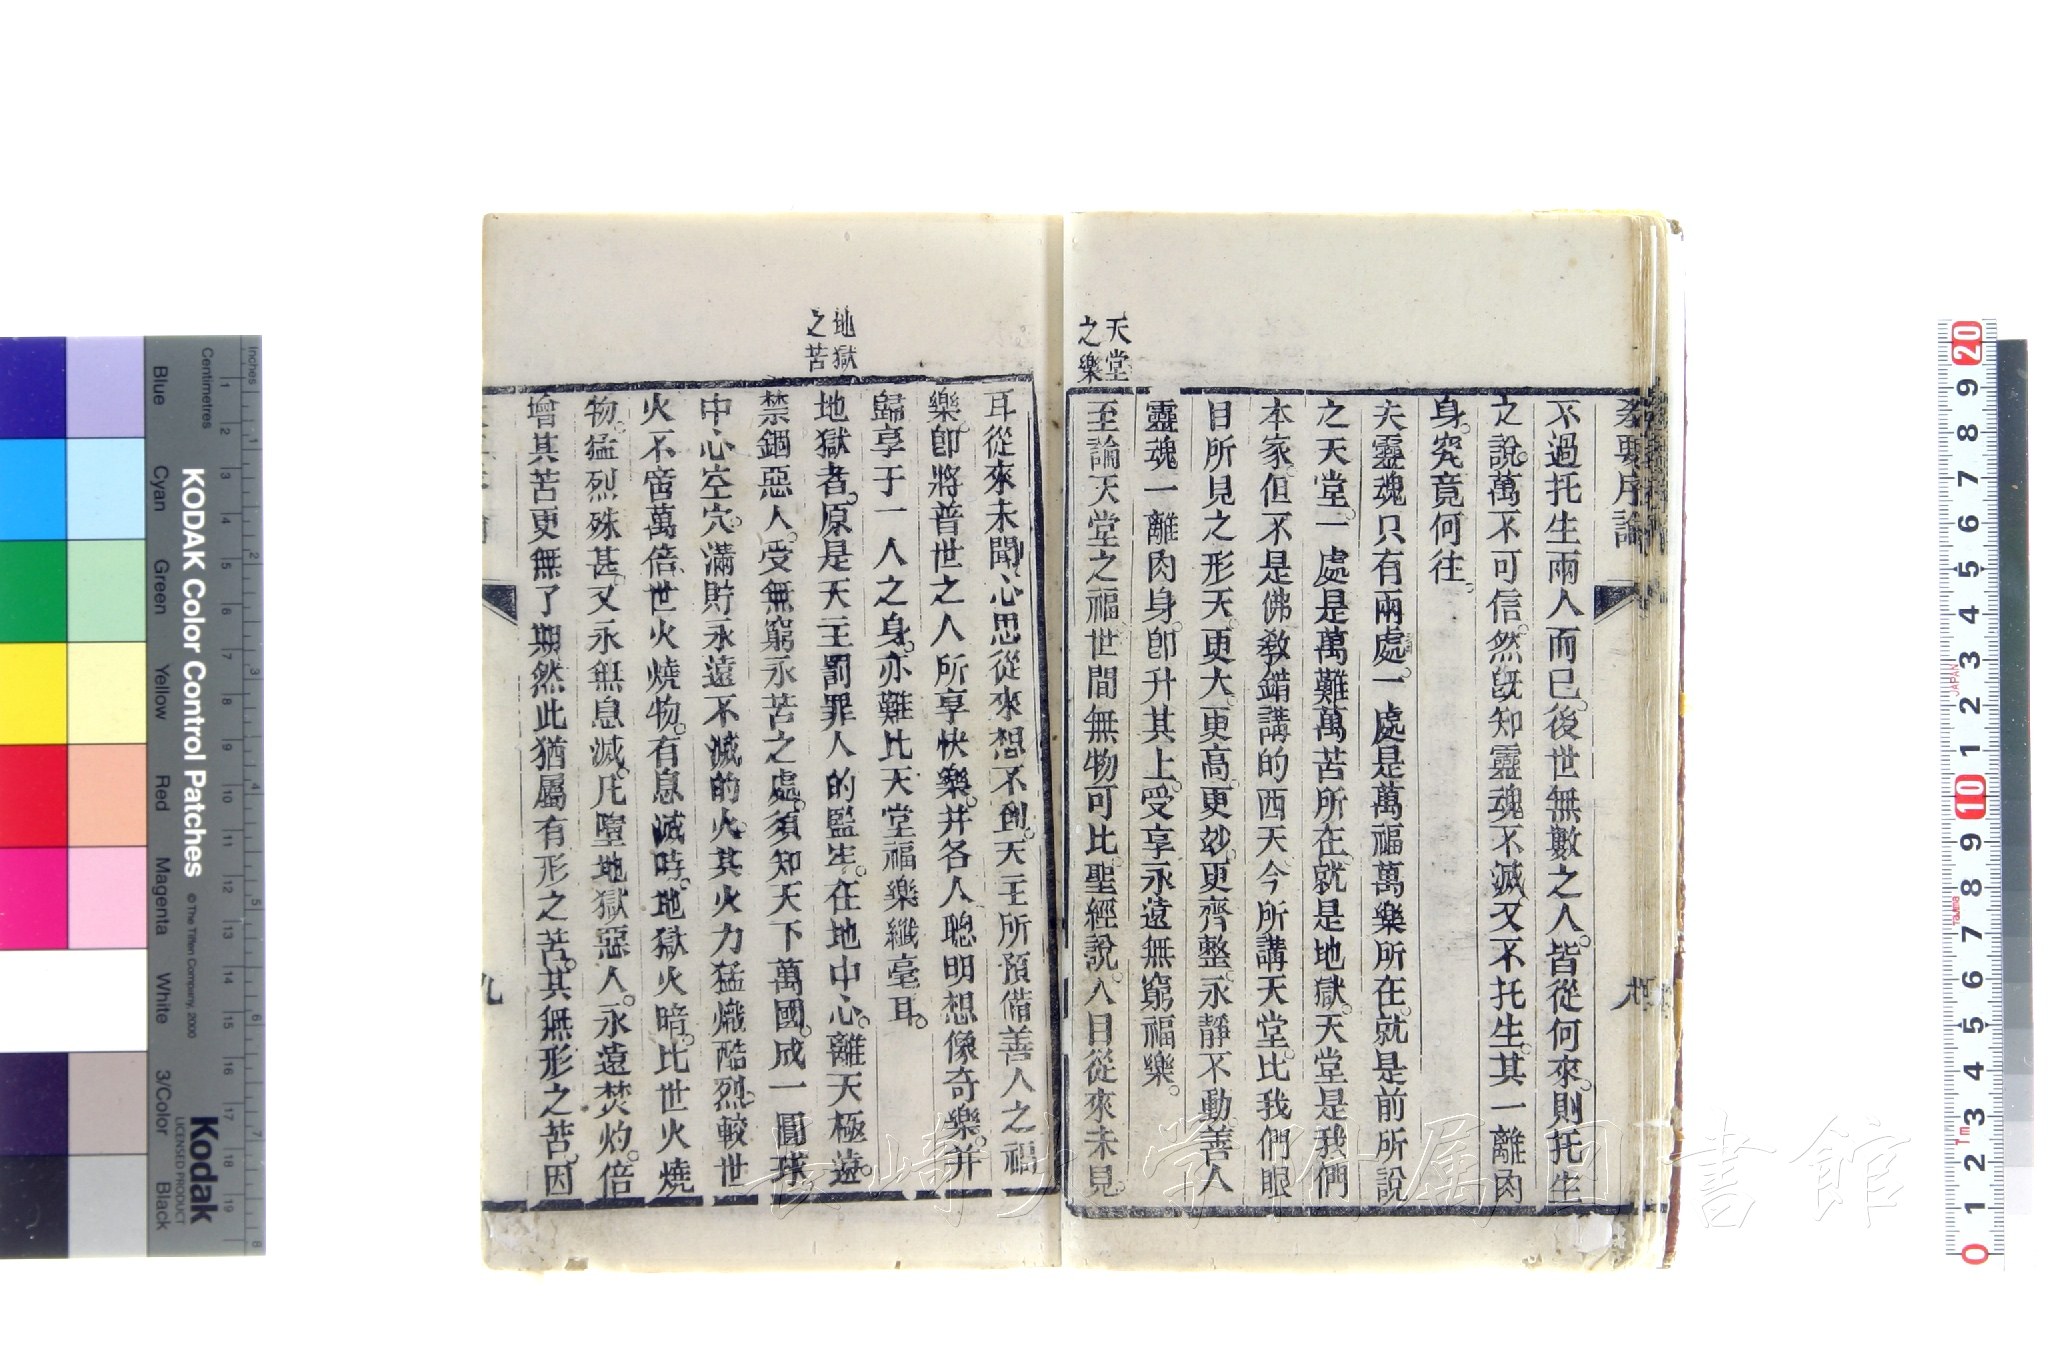 教要序論
八
不過托生兩人而已。後世無數之人。皆從何來。則托生
之說。萬不可信。然旣知靈魂不滅。又不托生。其一離肉
身。究竟何往。
夫靈魂只有兩處。一處是萬福萬樂所在。就是前所說
之天堂。一處是萬難萬苦所在。就是地獄。天堂是我們
本家。但不是佛敎錯講的西天。今所講天堂。比我們眼
目所見之形天。更大。更高。更妙。更齊整。永靜不動。善人
靈魂一離肉身。卽升其上。受享永遠無窮福樂。
天堂
之樂
至論天堂之福。世間無物可比。聖經說。人目從來未見。
耳從來未聞。心思從來想不到。天主所預備善人之福
樂。卽將普世之人所享快樂。并各人聰明想像奇樂。并
歸享于一人之身。亦難比天堂福樂纖毫耳。
地獄
之苦
地獄者。原是天主罰罪人的監牢。在地中心。離天極遠。
禁錮惡人。受無窮永苦之處。須知天下萬國。成一圓球。
中心空穴。滿貯永遠不滅的火。其火力猛熾酷烈。較世
火不啻萬倍。世火燒物。有息滅時。地獄火暗。比世火燒
物。猛烈殊甚。又永無息滅。凡墮地獄惡人。永遠焚灼。倍
增其苦。更無了期。然此猶屬有形之苦。其無形之苦。因
九
長崎大学附属図書館
Inches
Centimetres
1 2 3 4 5 6 7 8 9 10 11 12 13 14 15 16 17 18 19
1 2 3 4 5 6 7 8
Blue Cyan Green Yellow Red Magenta White 3/Color Black
KODAK Color Control Patches
© The Tiffen Company, 2000
Kodak
LICENSED PRODUCT
20 9 8 7 6 5 4 3 2 1 10 9 8 7 6 5 4 3 2 1 0
JAPAN
1m